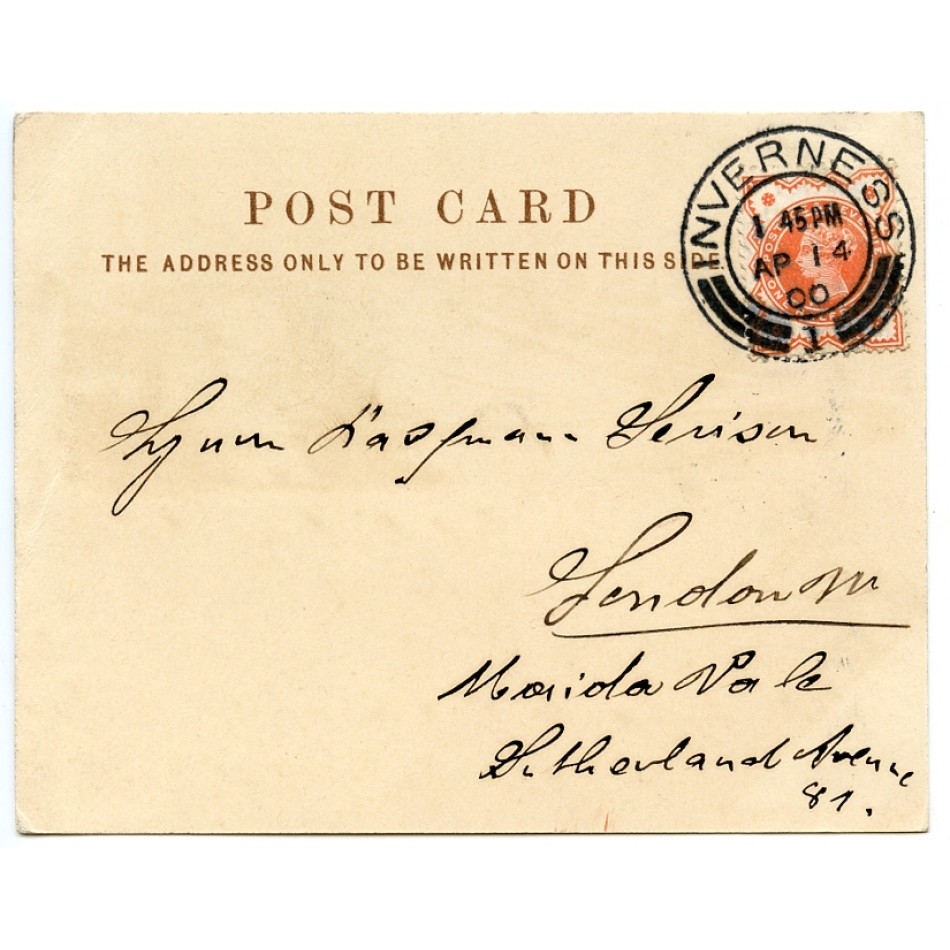 POST CARD
THE ADDRESS ONLY TO BE WRITTEN ON THIS SIDE.
INVERNESS
1 45PM
AP 14
00
1
London W
Marida Vale
Sutherland Avenue
81.